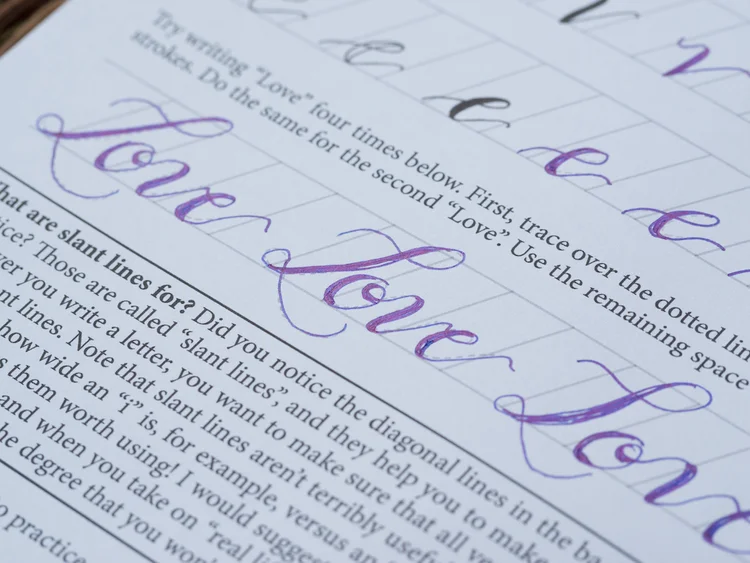 v r
e e e e e
Try writing "Love" four times below. First, trace over the dotted
strokes. Do the same for the second "Love". Use the remaining space
Love Love Love
What are slant lines for? Did you notice the diagonal lines in the
Those are called "slant lines", and they help you to make
you write a letter, you want to make sure that all
lines. Note that slant lines aren't terribly
how wide an "i" is, for example, versus an
them worth using! I would
and when you take on "real
he degree that you
practice